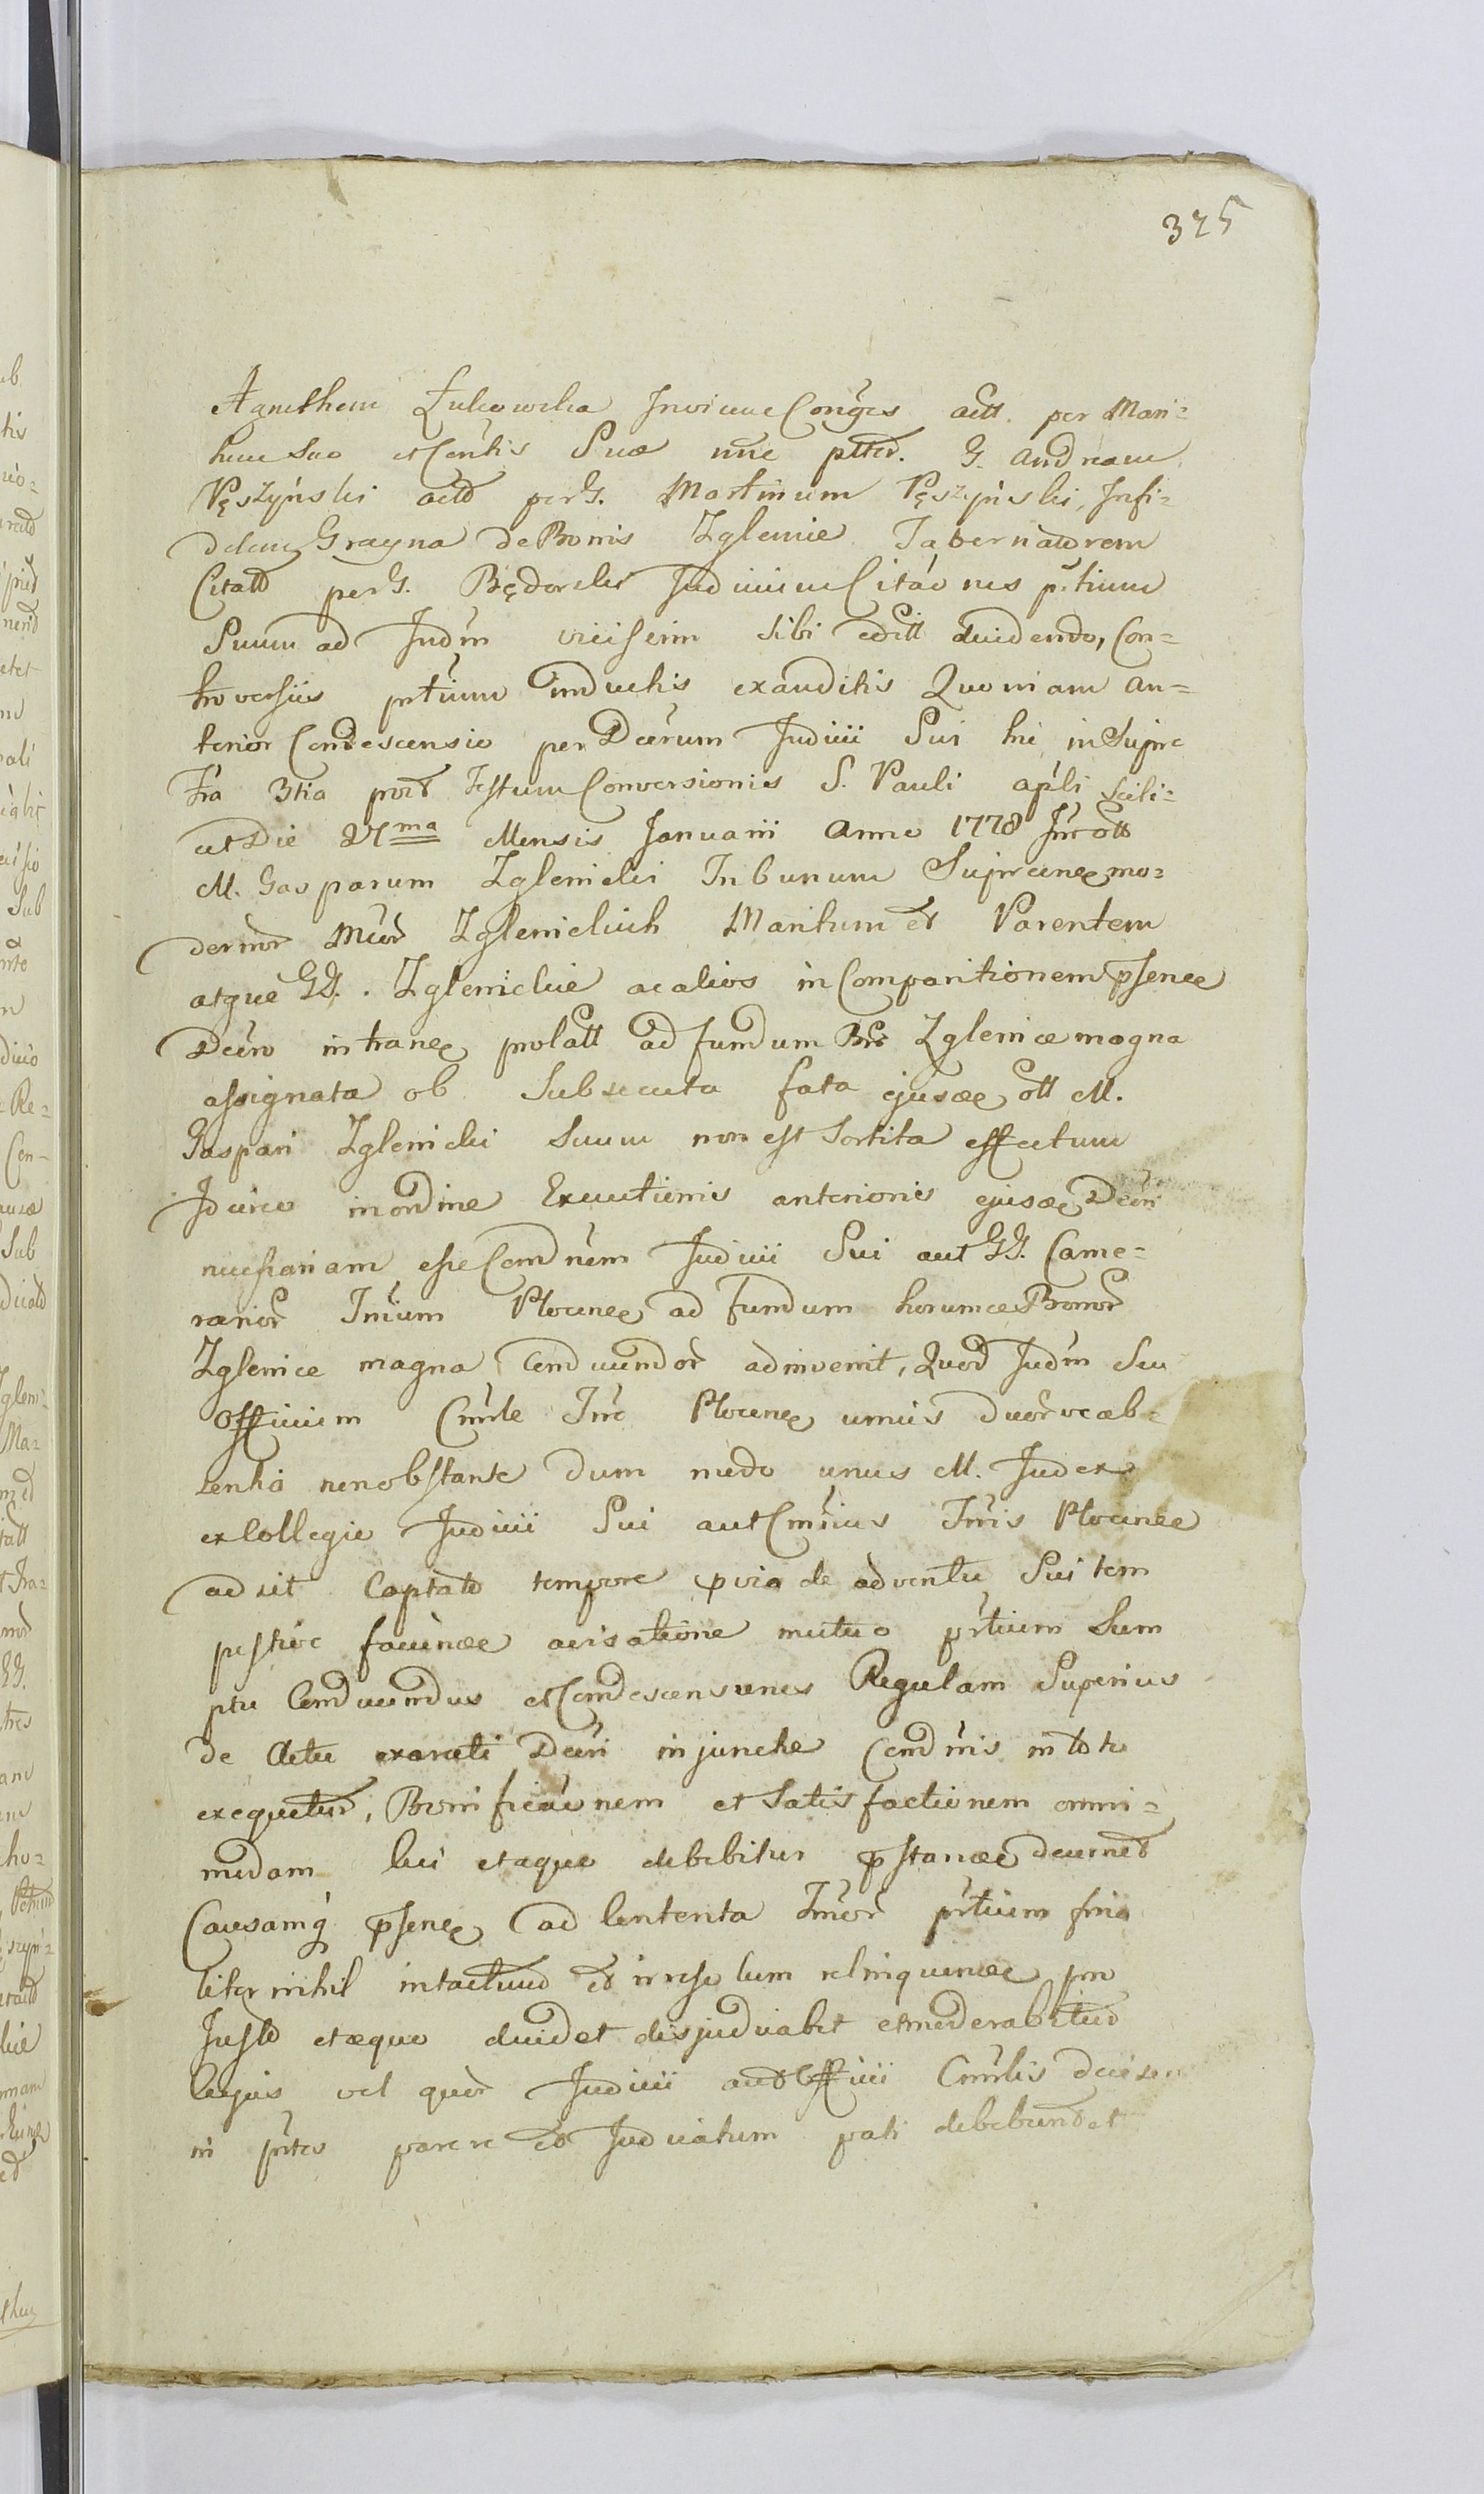 325
Agnethem Łukowska Invicem Conges actt. per Mari=
tum suo et Contis Suæ nne pttr. G. Andream
Pęszyński actt per G. Martinum Pęszyński, Infi=
delem Grayna de Bonis Zglenie Tabernatorem
Citatt per G. Będorski Judicium Citaónes prtium
Suum ad Judm vicissim sibi editt dividendo, Con=
troversiis prtium inductis exauditis Quoniam an=
terior Condescensio per Decrum Judicii Sui hic in Supre
Fra 3tia post Festum Conversionis S. Pauli apli scili=
cet Die 27ma Mensis Januarii Anno 1778 Int ott
M. Gasparum Zglenicki Tribunum Supraneæ mo=
dernor Mcor Zglenickich Maritum et Parentem
atque GG. Zglenickie ac alios in Comparitionem psence
Decro intranee prolatt ad fundum Bnr Zglenice magna
assignata ob subsecuta fata ejusdee ott M.
Gaspari Zglenicki suum non est sortita effectum
Idcirco in ordine Executionis anterioris ejusdee Decri
necessariam esse Condnem Judicii Sui aut GG. Came=
rarior Trrium Plocinee ad fundum horumce Bronor
Zglenice magna Conducendor adinvenit, Quod Judm Suu
Officium Cmrle Trre Plocinee unius duor vcab=
senha non obstante dum modo unus M. Judex
ex Collegio Judicii Sui aut Cmrius Trris Plocinee
adsit Captato tempore pvia de adventu Sui tem
pestive faciendee avisatione mutuo prtium Sum
ptu Conducendus et Condescensiones Regulam Superius
de Actu exarati Decri injunctæ Condnis in toto
exequetur, Bonificaónem et Satisfactionem omni=
modam cui et aquo debebitur pstandee decernet
Causamq psenee ad Contenta Trreor prtium fina
liter nihil intactum et irresolum relinquendee pro
Justo et æquo dividet disjudicabit et moderabitur
Cujus vel quor Judicii aut Officii Cmrlis decisen
ni prtes parere et Judicatum pati debebunt et